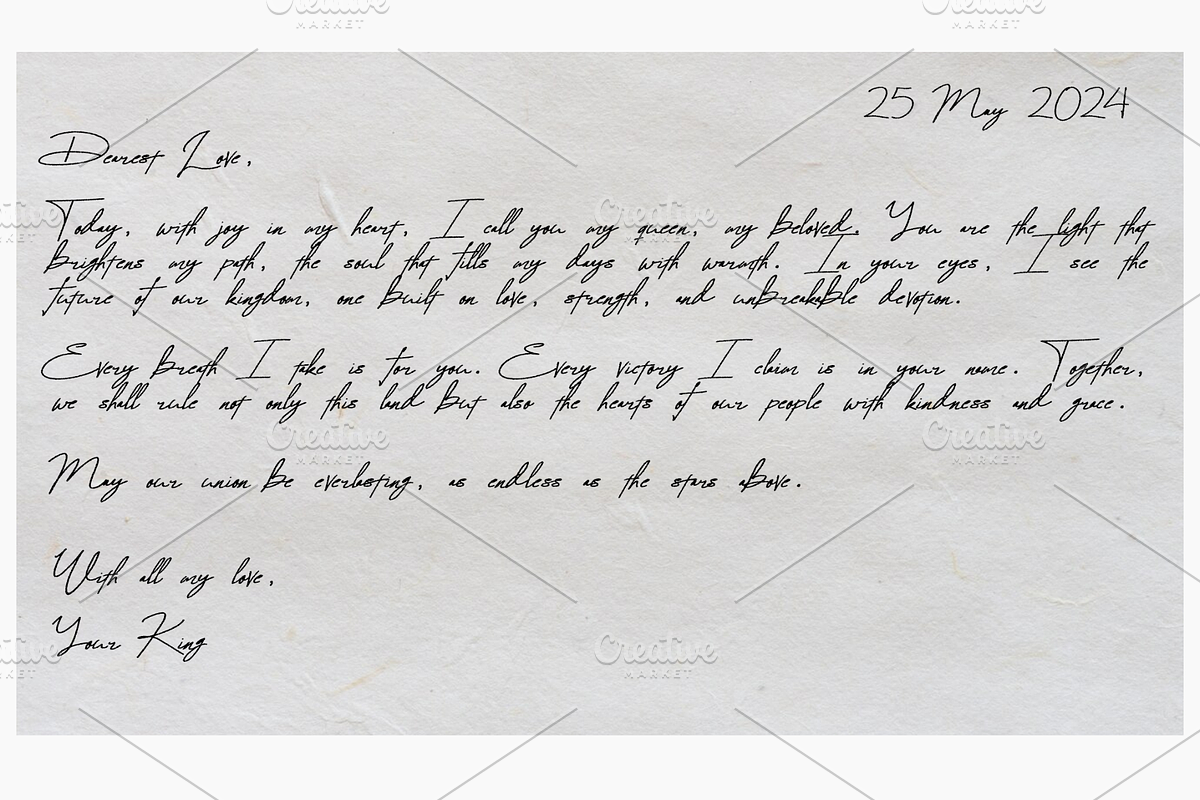 25 May 2024
Dearest Love,
Today, with joy in my heart, I call you my queen, my beloved. You are the light that
brightens my path, the soul that fills my days with warmth. In your eyes, I see the
future of our kingdom, one built on love, strength, and unbreakable devotion.
Every breath I take is for you. Every victory I claim is in your name. Together,
we shall rule not only this land but also the hearts of our people with kindness and grace.
May our union be everlasting, as endless as the stars above.
With all my love,
Your King
Creative
MARKET
Creative
MARKET
Creative
MARKET
Creative
MARKET
Creative
MARKET
Creative
MARKET